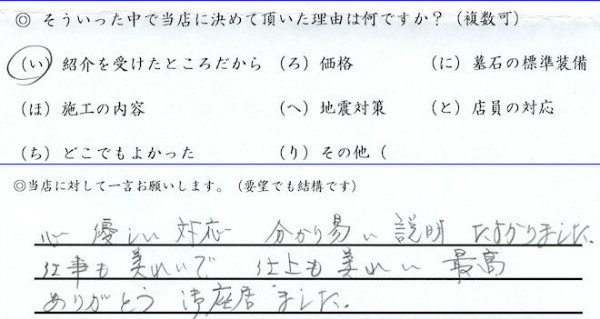 ◎ そういった中で当店に決めて頂いた理由は何ですか？（複数可）
（い）紹介を受けたところだから （ろ）価格 （に）墓石の標準装備
（ほ）施工の内容 （へ）地震対策 （と）店員の対応
（ち）どこでもよかった （り）その他（
◎当店に対して一言お願いします。（要望でも結構です）
心 優しい 対応 分かり易い 説明 よかりました.
仕事も 美れいで 仕上も 美れい 最高
ありがとう 御座居ました.